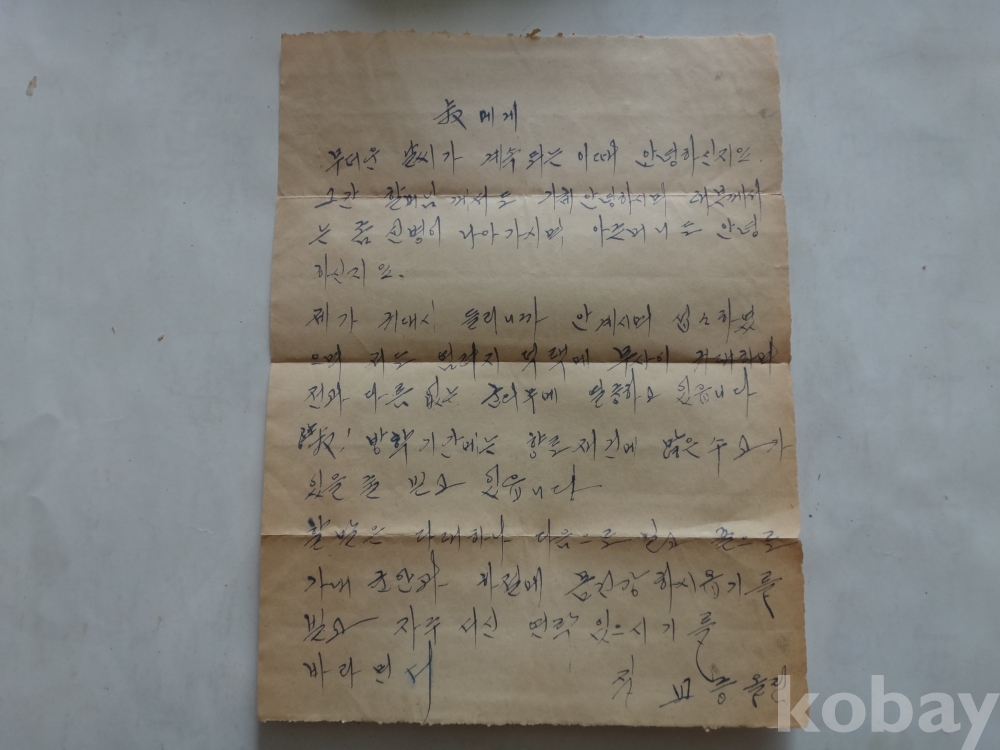 叔에게
무더운 날씨가 계속되는 이때 안녕하신지요.
그간 할머님께서도 기체안녕하시며 께서
는 좀 신병이 나아가시며 아주머니도 안녕
하신지요.
제가 귀대시 들리니까 안계시며 섭섭하였
으며 저는 염려지 덕택에 무사이 귀대하여
전과 다름없는 군의무에 열중하고 있읍니다
叔! 방학기간에는 향토재건에 많은 수고가
있을줄 믿고 있읍니다
할말은 다대하나 다음으로 밀고 끝으로
가내 균안과 하절에 몸건강하시옵기를
빌고 자주 서신 연락있으시기를
바라면서
kobay